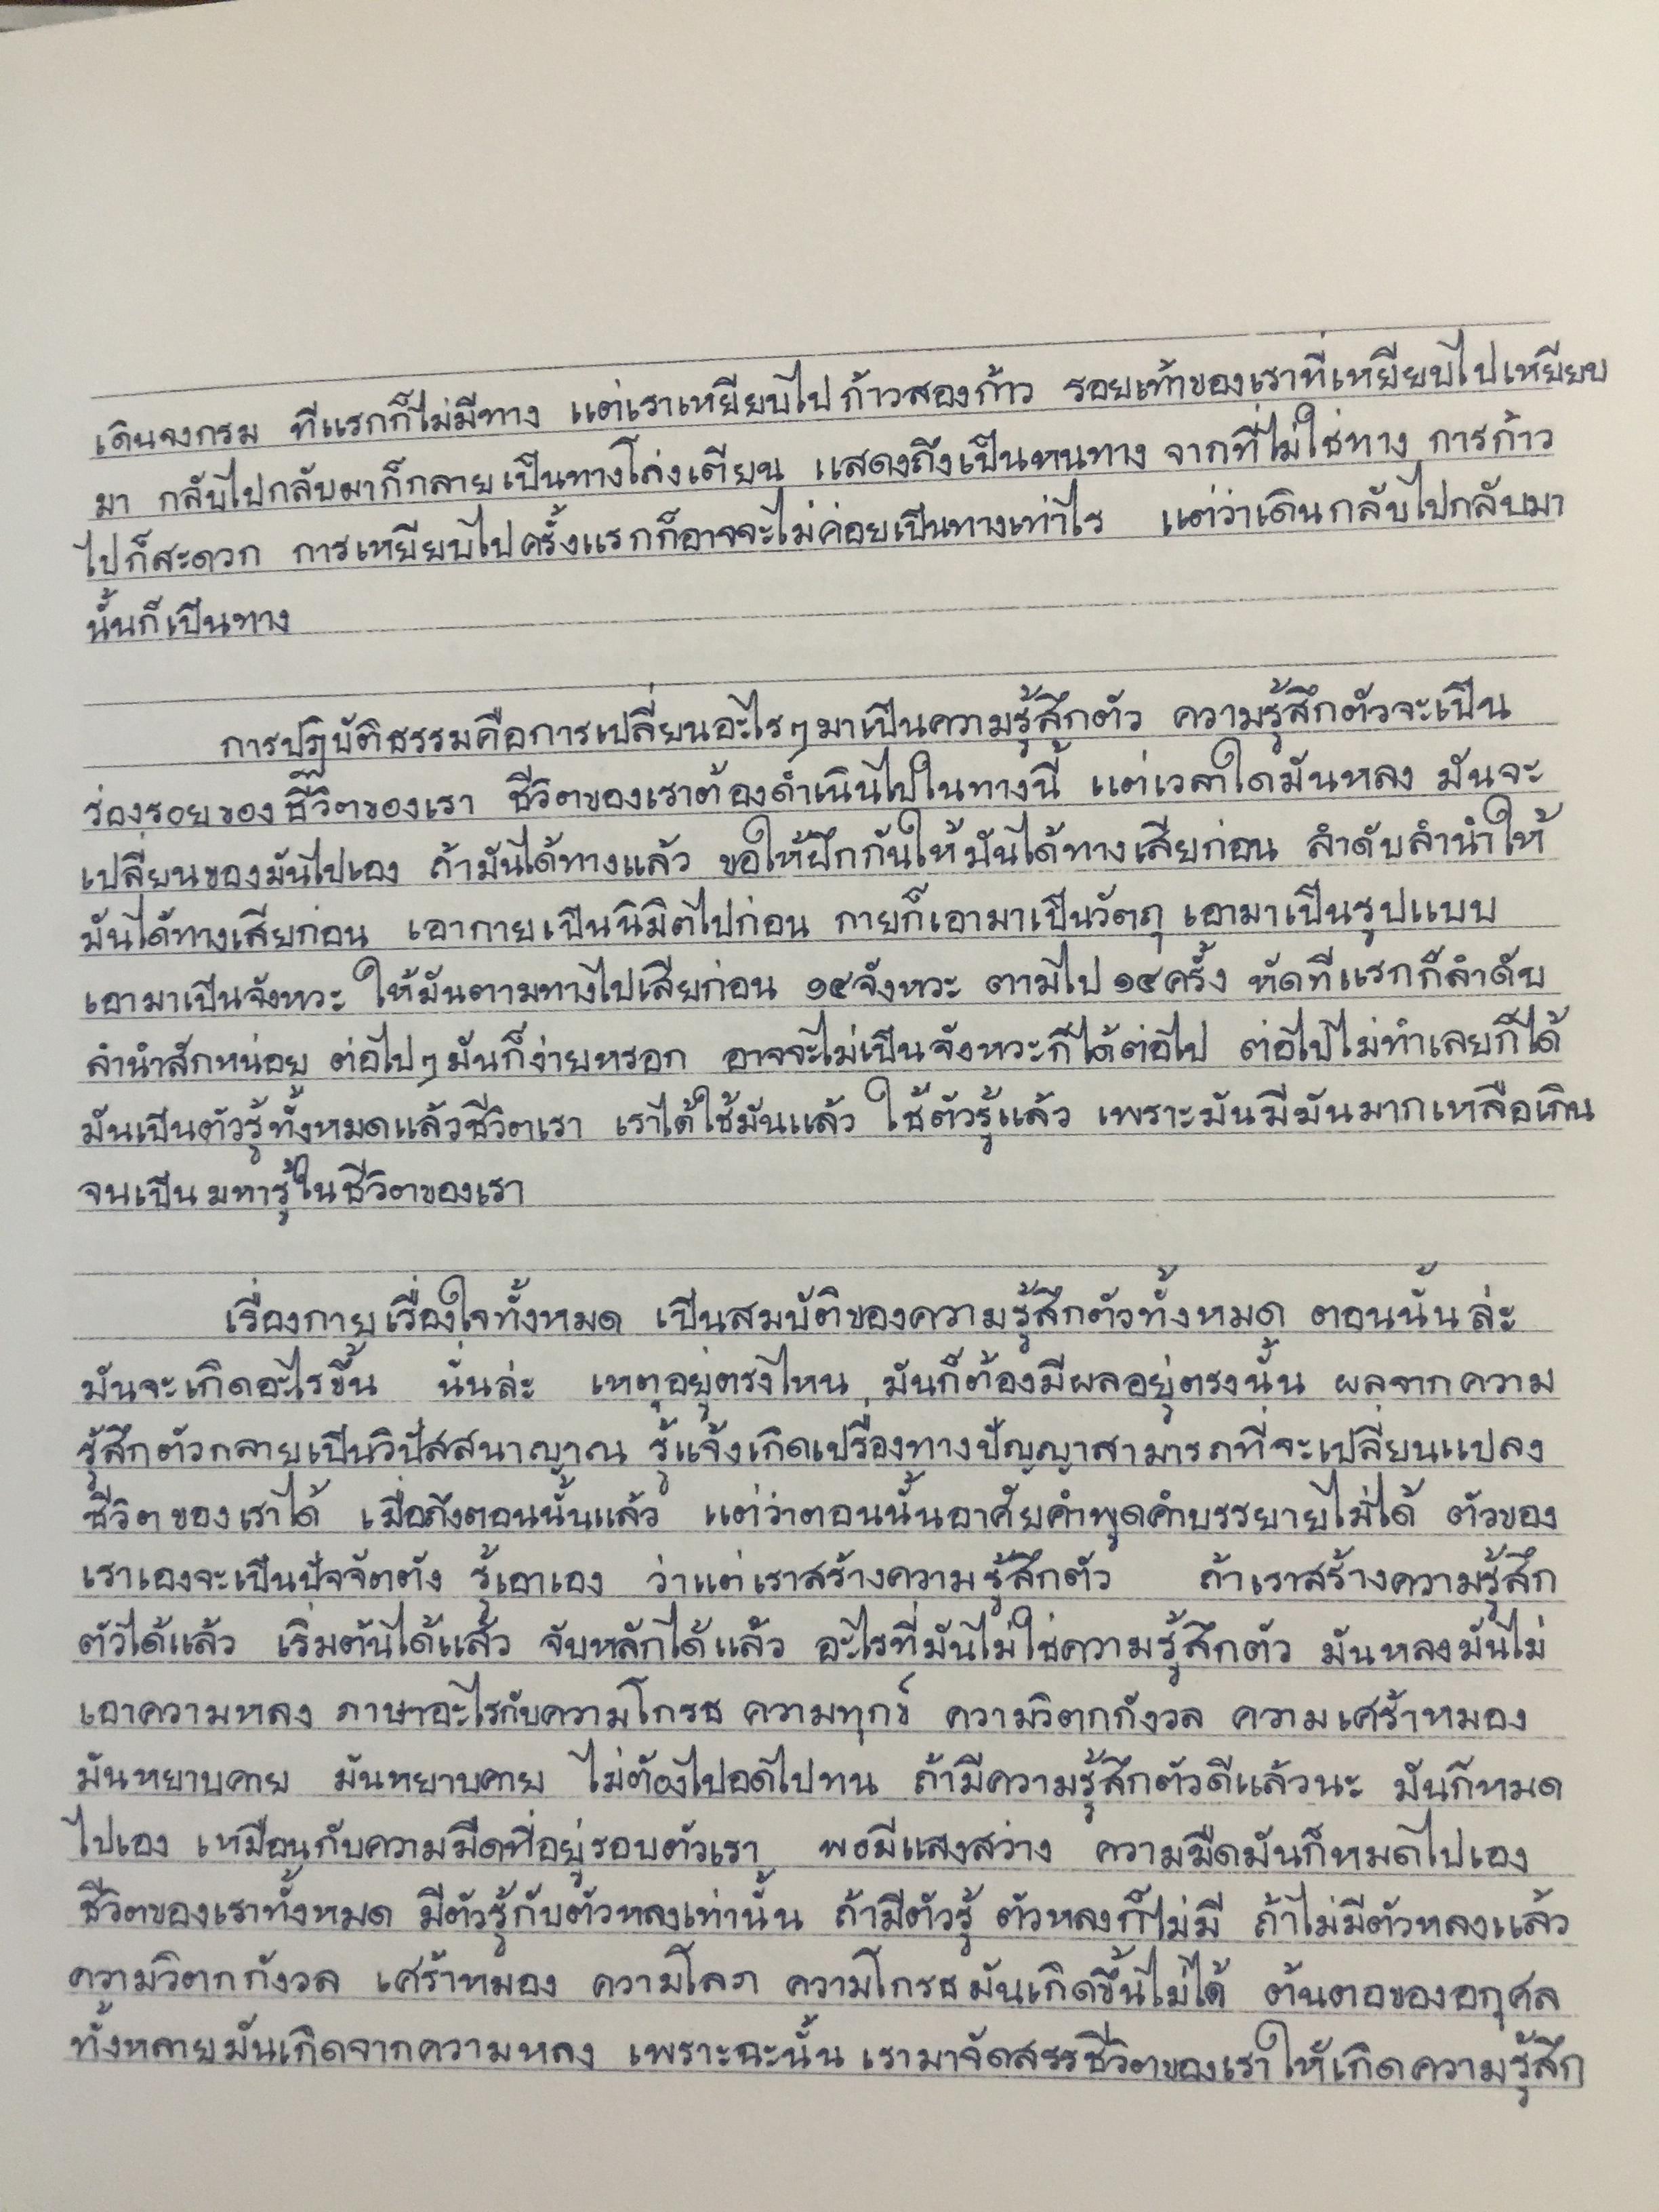 เดินจงกรม ทีแรกก็ไม่มีทาง แต่เราเหยียบไปก้าวสองก้าว รอยเท้าของเราที่เหยียบไปเหยียบ
มา กลับไปกลับมาก็กลายเป็นทางโล่งเตียน แสดงถึงเป็นหนทาง จากที่ไม่ใช่ทาง การก้าว
ไปก็สะดวก การเหยียบไปครั้งแรกก็อาจจะไม่ค่อยเป็นทางเท่าไร แต่ว่าเดินกลับไปกลับมา
นั้นก็เป็นทาง
การปฏิบัติธรรมคือการเปลี่ยนอะไรๆมาเป็นความรู้สึกตัว ความรู้สึกตัวจะเป็น
ร่องรอยของชีวิตของเรา ชีวิตของเราต้องดำเนินไปในทางนี้ แต่เวลาใดมันหลง มันจะ
เปลี่ยนของมันไปเอง ถ้ามันได้ทางแล้ว ขอให้ฝึกกันให้มันได้ทางเสียก่อน ลำดับลำนำให้
มันได้ทางเสียก่อน เอากายเป็นนิมิตไปก่อน กายก็เอามาเป็นวัตถุ เอามาเป็นรูปแบบ
เอามาเป็นจังหวะ ให้มันตามทางไปเสียก่อน ๑๔จังหวะ ตามไป ๑๔ครั้ง หัดทีแรกก็ลำดับ
ลำนำสักหน่อย ต่อไปๆมันก็ง่ายหรอก อาจจะไม่เป็นจังหวะก็ได้ต่อไป ต่อไปไม่ทำเลยก็ได้
มันเป็นตัวรู้ทั้งหมดแล้วชีวิตเรา เราได้ใช้มันแล้ว ใช้ตัวรู้แล้ว เพราะมันมีมันมากเหลือเกิน
จนเป็นมหารู้ในชีวิตของเรา
เรื่องกายเรื่องใจทั้งหมด เป็นสมบัติของความรู้สึกตัวทั้งหมด ตอนนั้นล่ะ
มันจะเกิดอะไรขึ้น นั่นล่ะ เหตุอยู่ตรงไหน มันก็ต้องมีผลอยู่ตรงนั้น ผลจากความ
รู้สึกตัวกลายเป็นวิปัสสนาญาณ รู้แจ้งเกิดเปรื่องทางปัญญาสามารถที่จะเปลี่ยนแปลง
ชีวิตของเราได้ เมื่อถึงตอนนั้นแล้ว แต่ว่าตอนนั้นอาศัยคำพูดคำบรรยายไม่ได้ ตัวของ
เราเองจะเป็นปัจจัตตัง รู้เอาเอง ว่าแต่เราสร้างความรู้สึกตัว ถ้าเราสร้างความรู้สึก
ตัวได้แล้ว เริ่มต้นได้แล้ว จับหลักได้แล้ว อะไรที่มันไม่ใช่ความรู้สึกตัว มันหลงมันไม่
เอาความหลง ภาษาอะไรกับความโกรธ ความทุกข์ ความวิตกกังวล ความเศร้าหมอง
มันหยาบคาย มันหยาบคาย ไม่ต้องไปอดไปทน ถ้ามีความรู้สึกตัวดีแล้วนะ มันก็หมด
ไปเอง เหมือนกับความมืดที่อยู่รอบตัวเรา พอมีแสงสว่าง ความมืดมันก็หมดไปเอง
ชีวิตของเราทั้งหมด มีตัวรู้กับตัวหลงเท่านั้น ถ้ามีตัวรู้ ตัวหลงก็ไม่มี ถ้าไม่มีตัวหลงแล้ว
ความวิตกกังวล เศร้าหมอง ความโลภ ความโกรธมันเกิดขึ้นไม่ได้ ต้นตอของอกุศล
ทั้งหลายมันเกิดจากความหลง เพราะฉะนั้น เรามาจัดสรรชีวิตของเราให้เกิดความรู้สึก